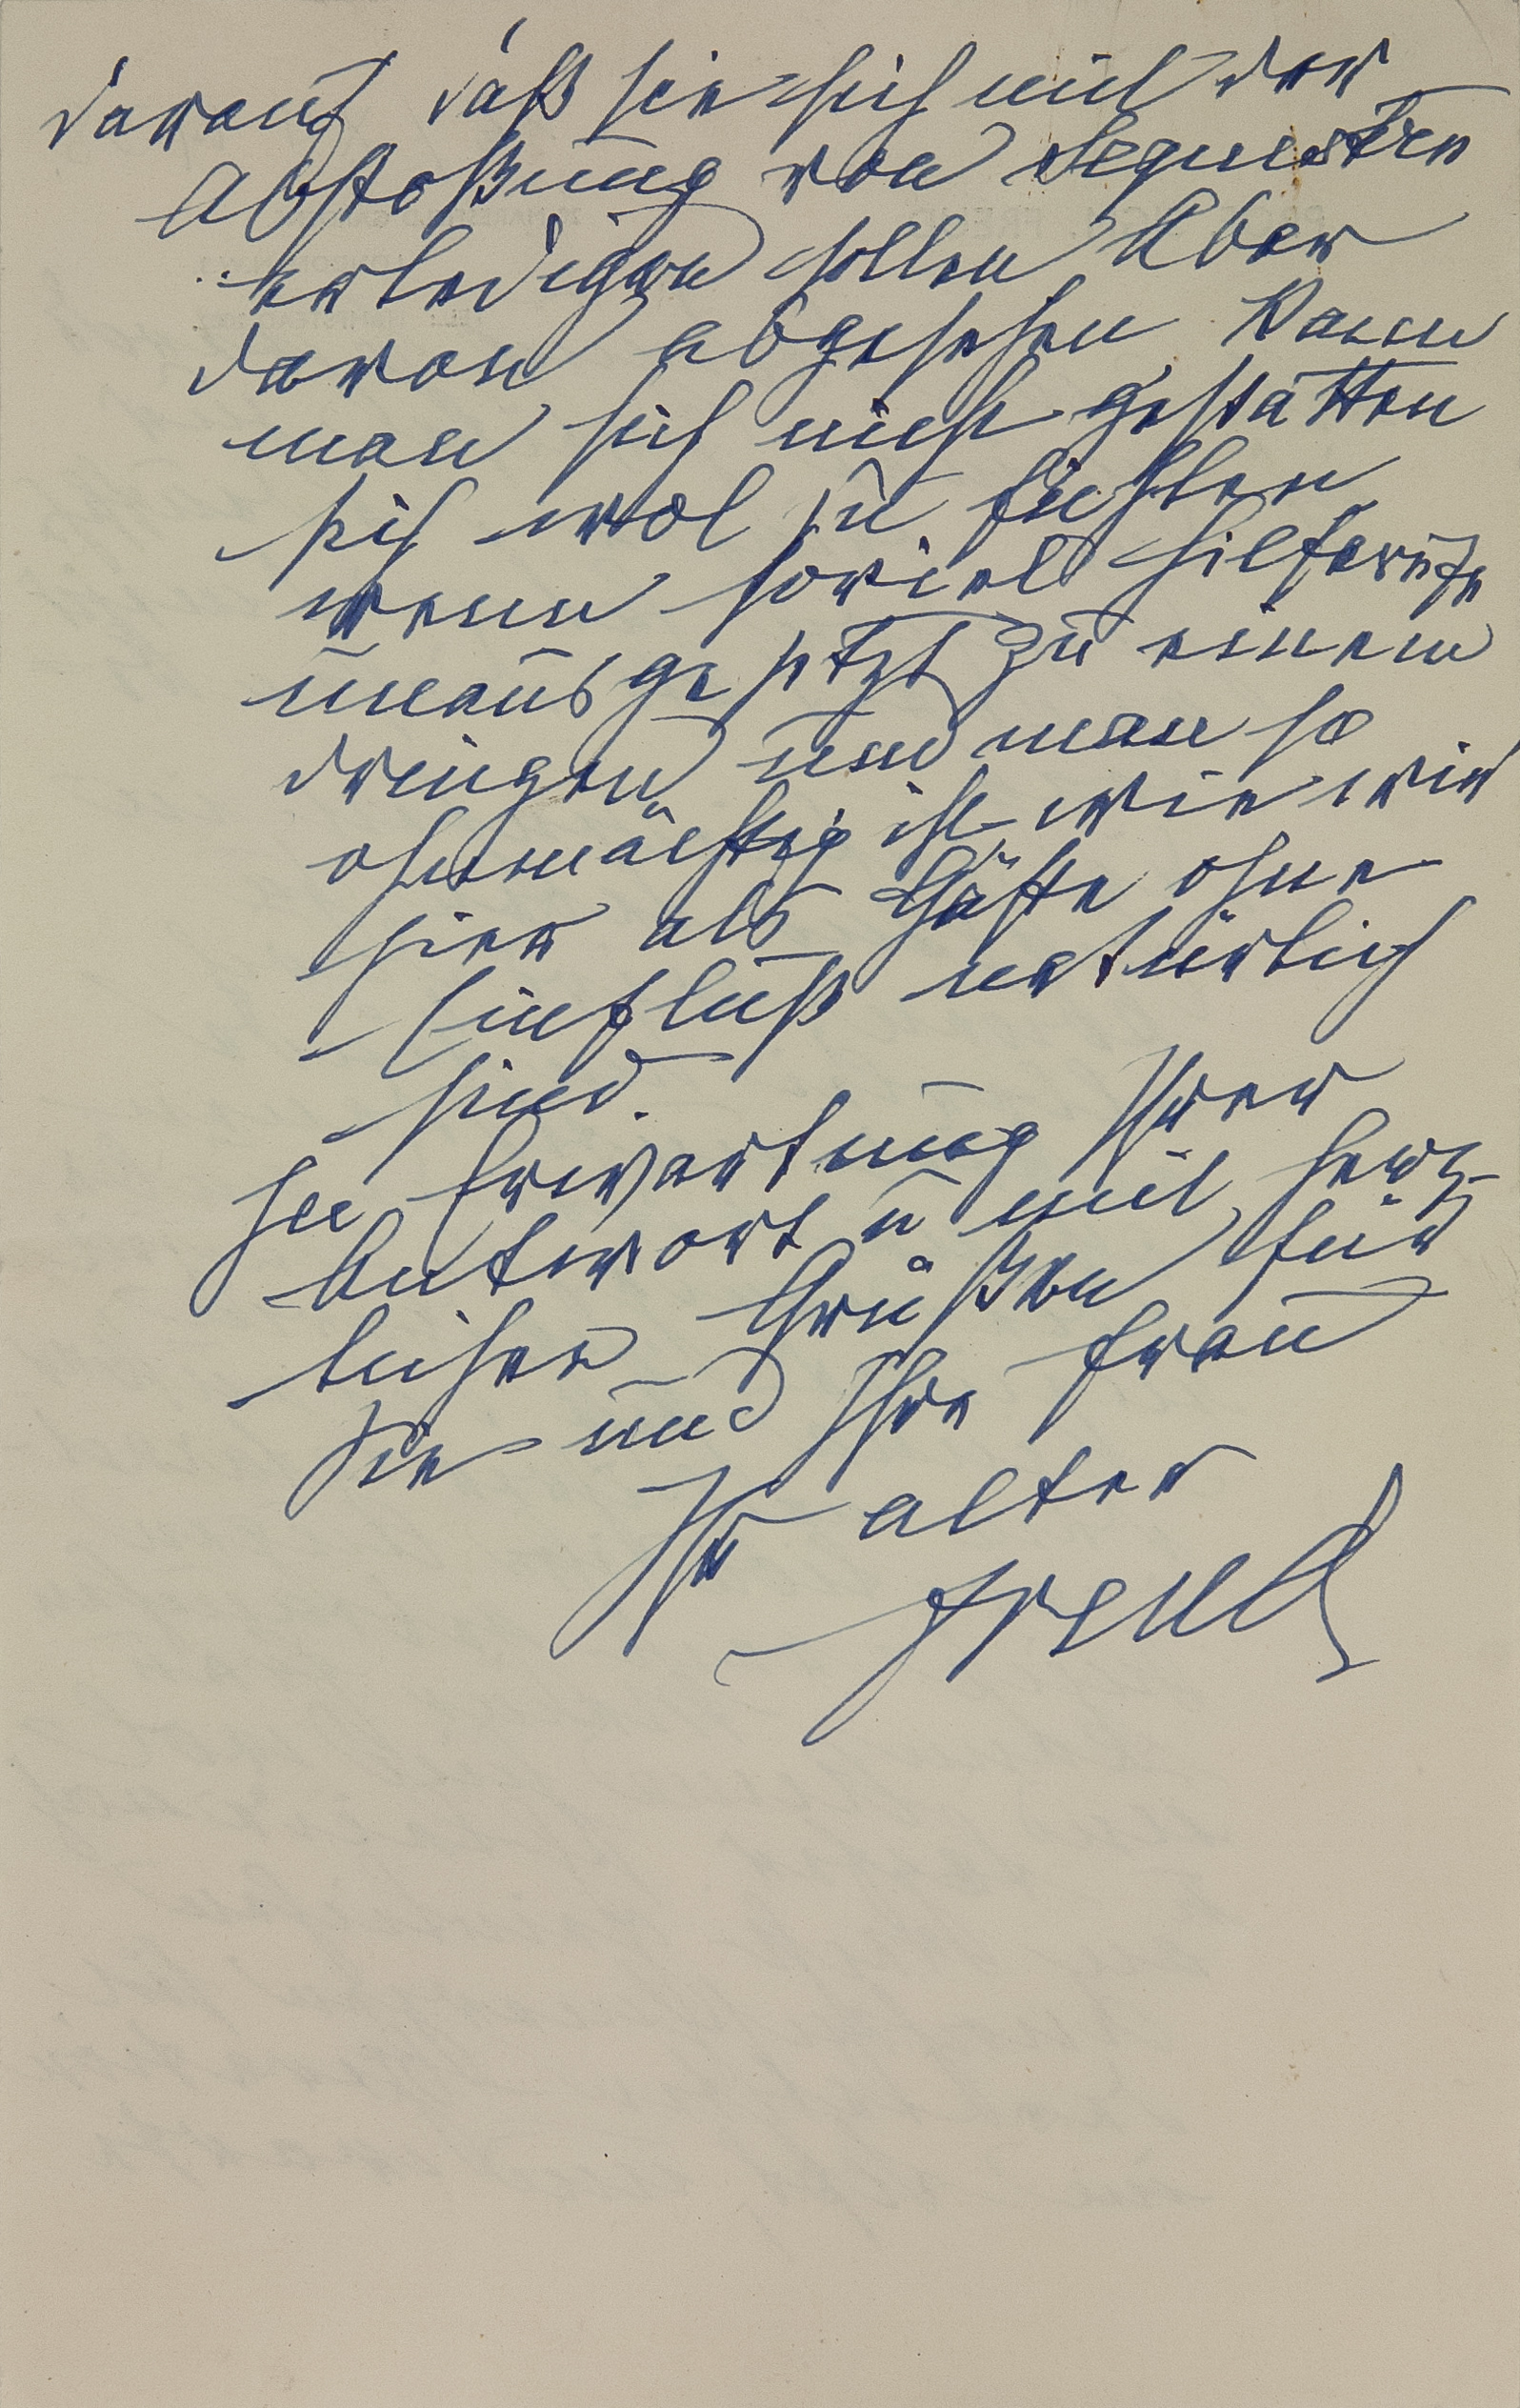 darauf, daß sie sich mit der
Abstoßung von Sequestern
erledigen sollen. Aber
davon abgesehen. Kann
man sich nicht gestatten
sich wol zu fühlen
wenn soviel Hilferufe
unausgesetzt zu einem
dringen und man so
ohnmächtig ist wie wir
hier als Gäste ohne
Einfluß natürlich
sind.
In Erwartung Ihrer
Antwort u mit herz-
lichen Grüßen für
Sie und Ihre Frau
Ihr alter
Freud